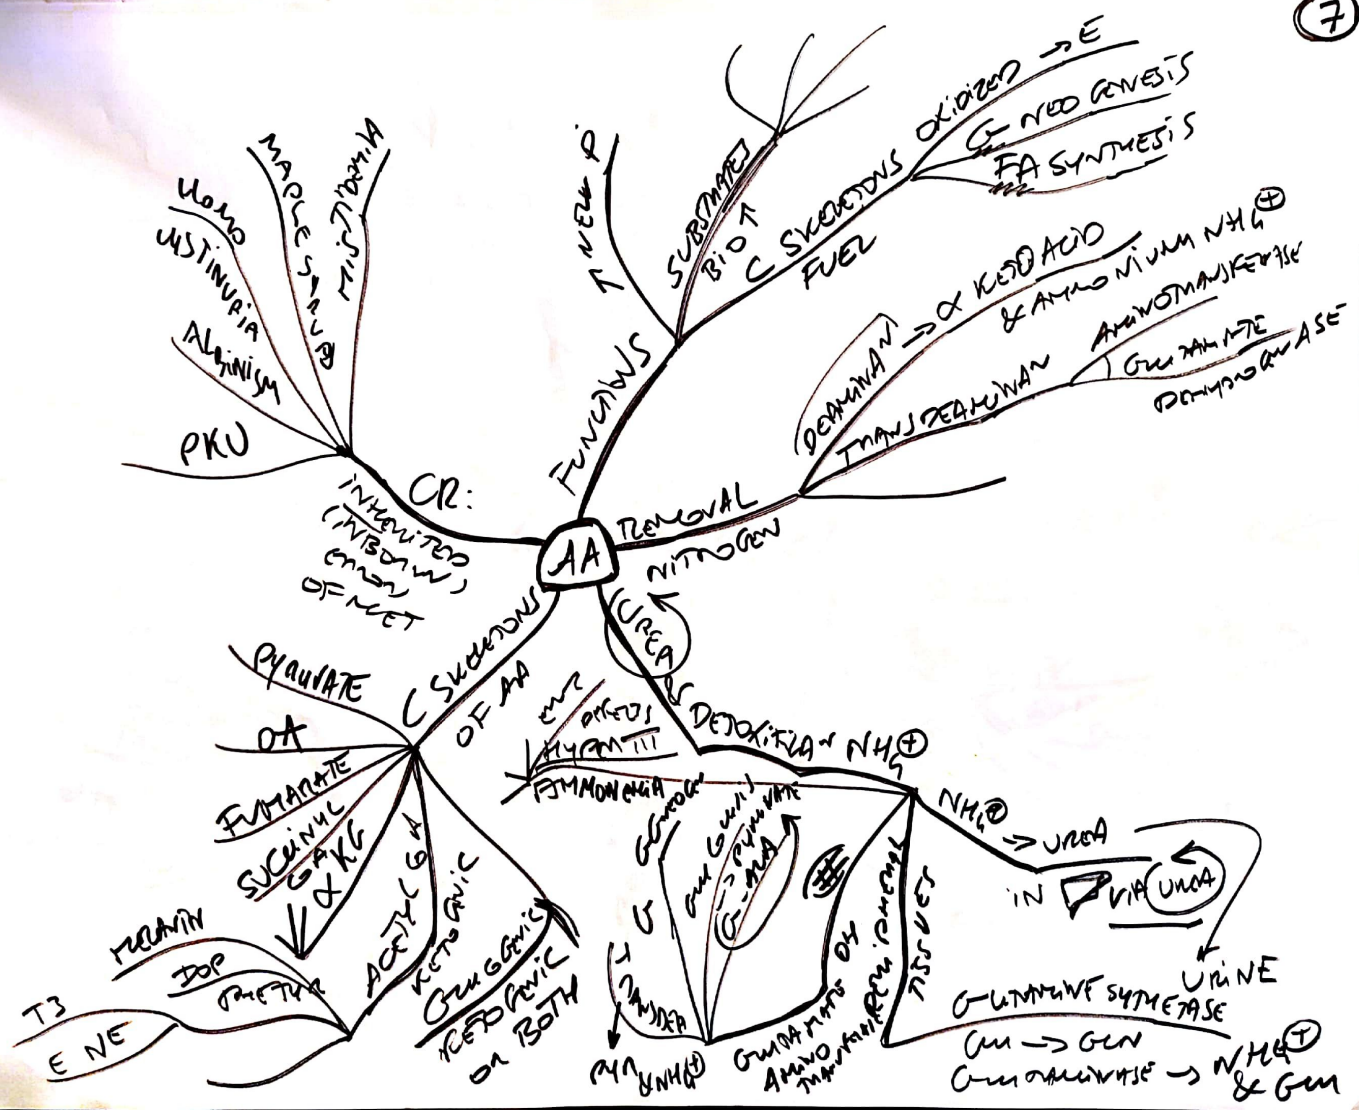 7
AA
FUNCTIONS
SUBSTRATES
BIO ↑
C SKELETONS
FUEL
OXIDIZED → E
G NEOGENESIS
FA SYNTHESIS
REMOVAL
NITROGEN
DEAMINAN → α KETO ACID
& AMMONIUM NH4⊕
TRANSDEAMINAN
AMINOTRANSFERASE
GLUTAMATE
DEHYDROGENASE
UREA
& DETOXIFICAN NH4⊕
HYPER
AMMONEMIA
NH4⊕ → UREA
IN
VIA UREA
URINE
PERIPHERAL
TISSUES
GLUTAMINE SYTHETASE
GLU → GLN
GLUTAMINASE → NH4⊕
& GLU
GLUTAMATE DH
AMINO
TRANSFERASE
#
→ PYRUVATE
G - ALA
TRANSDEA
PYR
& NH4⊕
C SKELETONS
OF AA
PYRUVATE
OA
FUMARATE
SUCCINYL
CoA
α KG
ACETYL CoA
KETOGENIC
GLUCOGENIC
KETOGENIC
OR BOTH
MELANIN
DOP
T3
E NE
CR:
INHERITED
(INBORN)
ERROR
OF MET
PKU
ALBINISM
HOMO
CYSTINURIA
MAPLE SYRUP
HISTIDEMIA